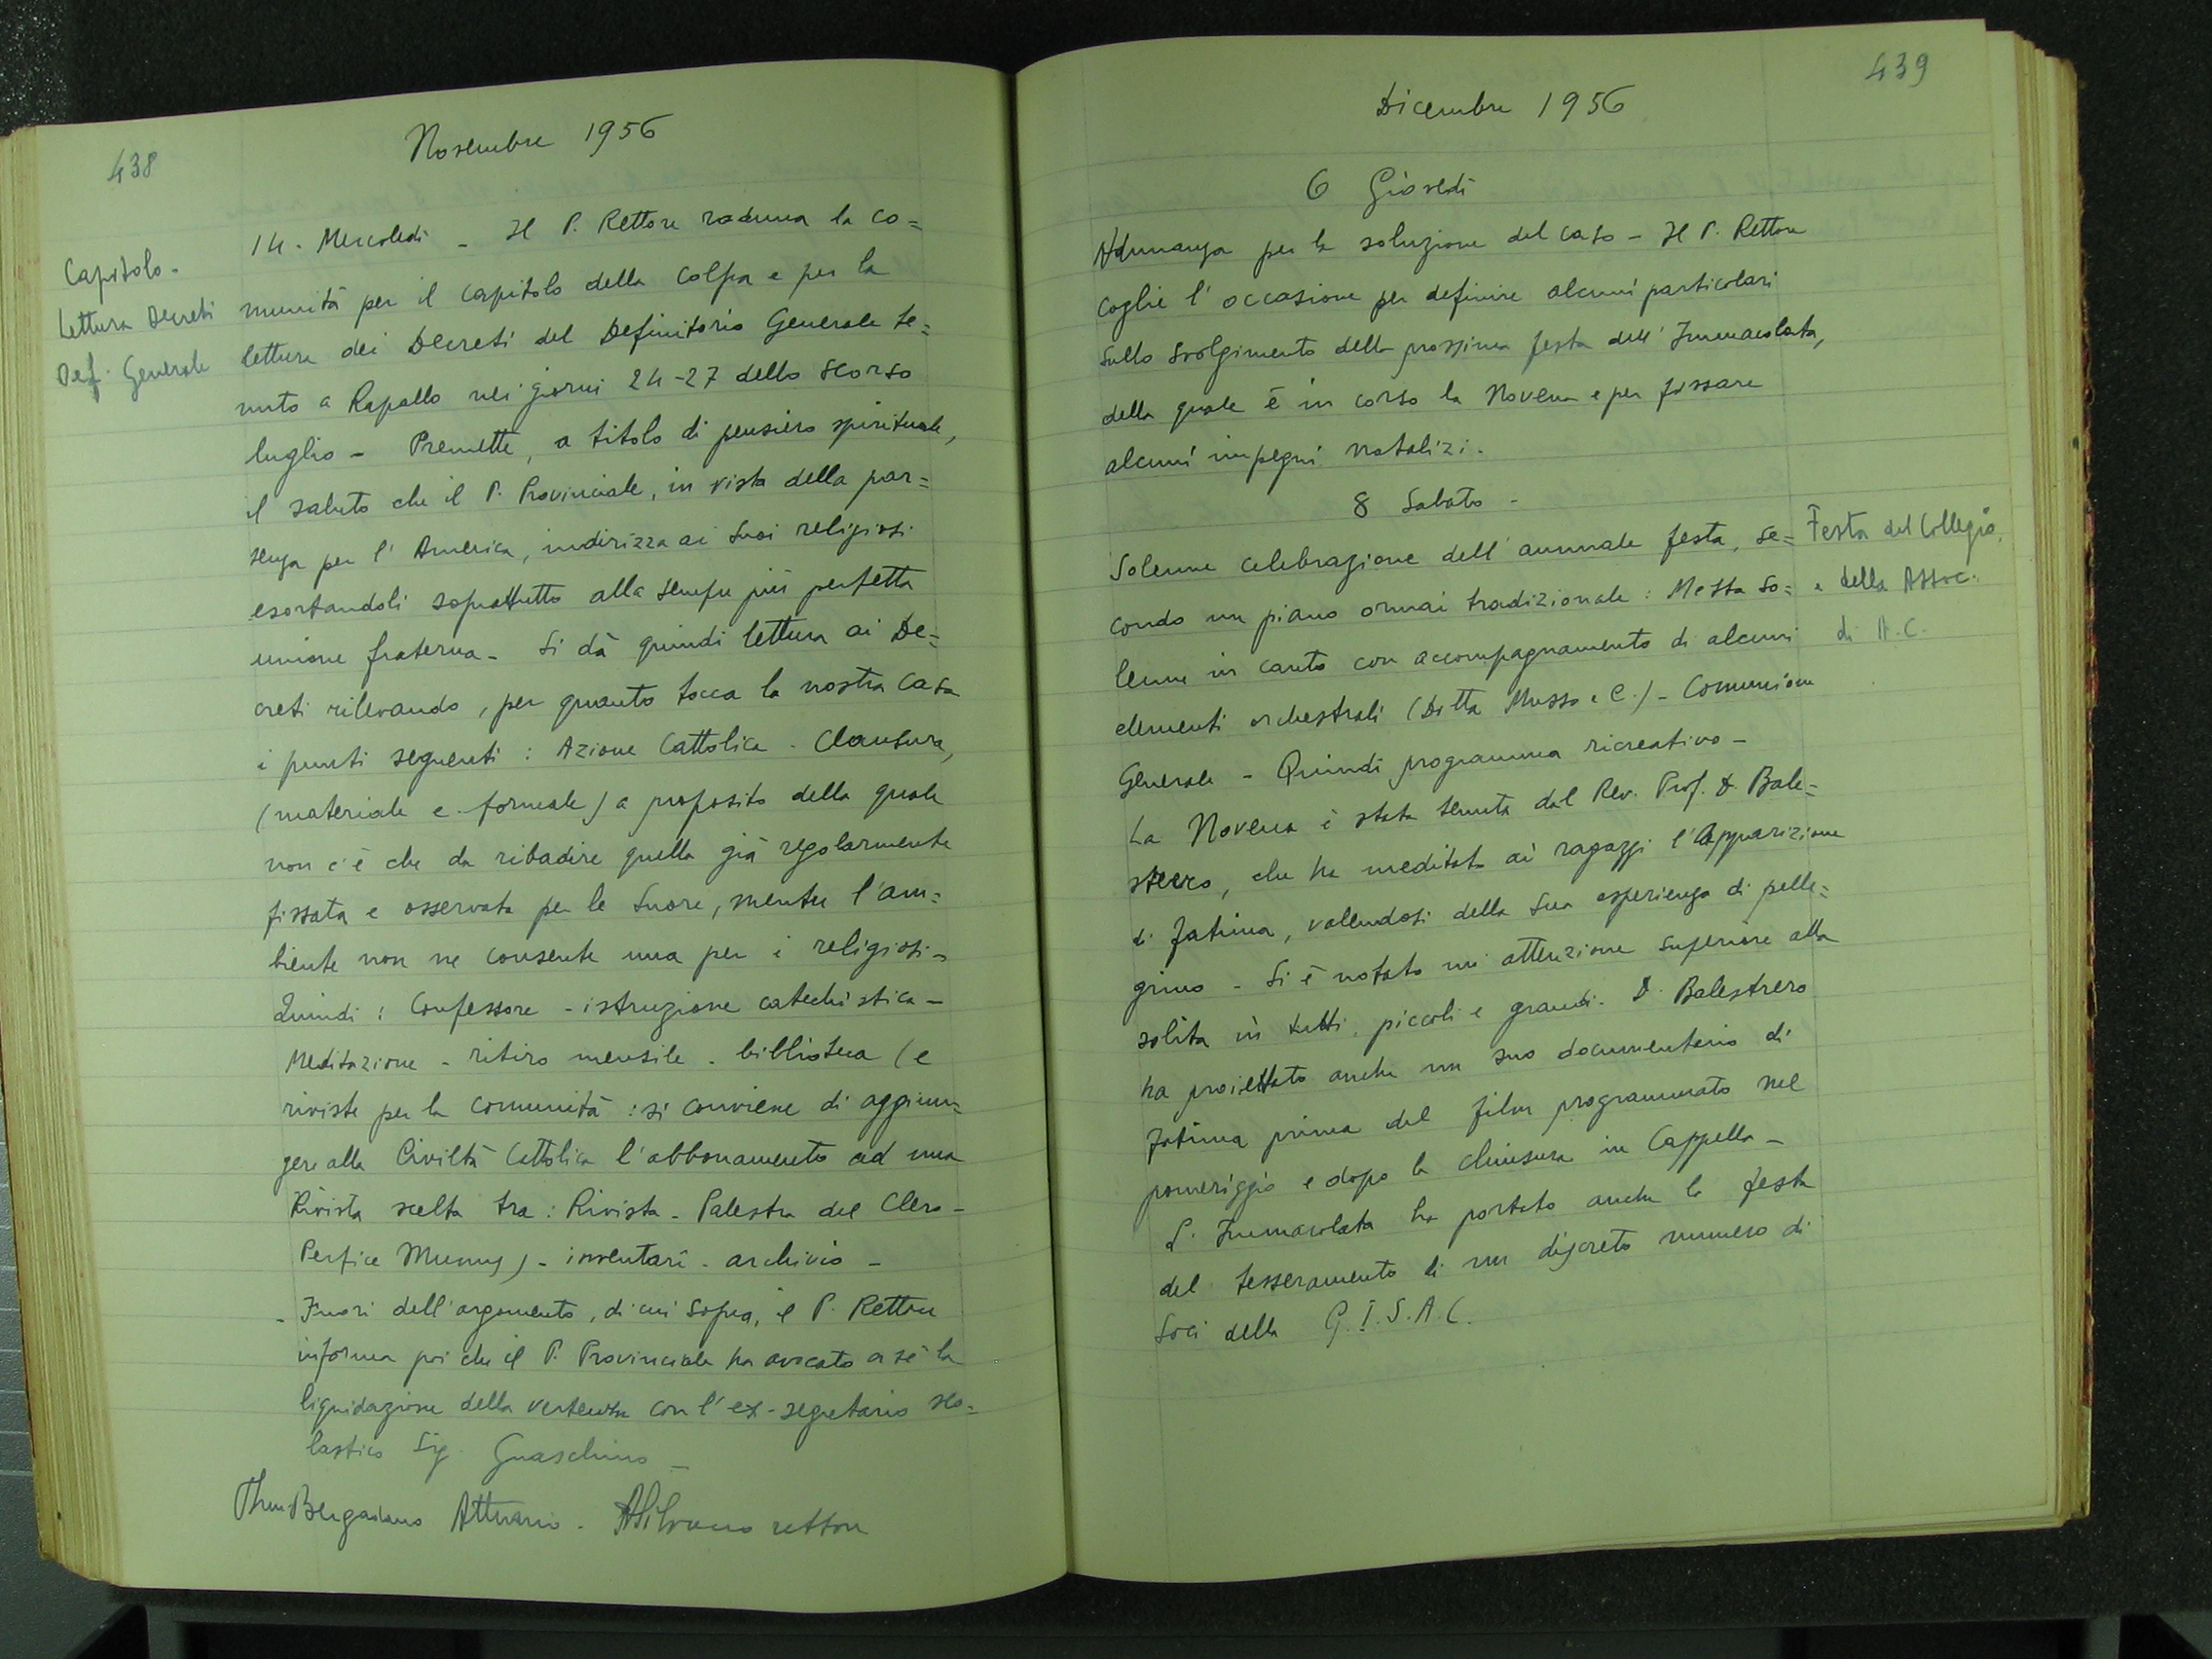 438
Novembre 1956
Capitolo -
Lettura Decreti
Def. Generale
14 - Mercoledì - Il P. Rettore raduna la co=
munità per il capitolo della colpa e per la
lettura dei Decreti del Definitorio Generale te=
nuto a Rapallo nei giorni 24-27 dello scorso
luglio - Premette, a titolo di pensiero spirituale,
il saluto che il P. Provinciale, in vista della par=
tenza per l'America, indirizza ai suoi religiosi
esortandoli soprattutto alla sempre più perfetta
unione fraterna - Si dà quindi lettura ai De=
creti rilevando, per quanto tocca la nostra casa
i punti seguenti : Azione Cattolica - Clausura,
(materiale e formale) a proposito della quale
non c'è che da ribadire quella già regolarmente
fissata e osservata per le Suore, mentre l'am=
biente non ne consente una per i religiosi -
Quindi : Confessore - istruzione catechistica -
Meditazione - ritiro mensile - biblioteca (e
riviste per la comunità : si conviene di aggiun=
gere alla Civiltà Cattolica l'abbonamento ad una
Rivista scelta tra : Rivista - Palestra del Clero -
Perfice Munus) - inventari - archivio -
- Fuori dell'argomento, di cui sopra, il P. Rettore
informa poi che il P. Provinciale ha avocato a sé la
liquidazione della vertenza con l'ex-segretario sco=
lastico Sig. Guaschino -
Bergadano Attuario - rettore
439
Dicembre 1956
6 Giovedì
Adunanza per la soluzione del caso - Il P. Rettore
coglie l'occasione per definire alcuni particolari
sullo svolgimento della prossima festa dell'Immacolata,
della quale è in corso la Novena e per fissare
alcuni impegni natalizi.
8 Sabato -
Festa del Collegio,
e della Assoc.
di A.C.
Solenne celebrazione dell'annuale festa, se=
condo un piano ormai tradizionale : Messa so=
lenne in canto con accompagnamento di alcuni
elementi orchestrali (Ditta Musso e C.) - Comunione
Generale - Quindi programma ricreativo -
La Novena è stata tenuta dal Rev. Prof. D. Bale=
strero, che ha meditato ai ragazzi l'Apparizione
di Fatima, valendosi della sua esperienza di pelle=
grino - Si è notato un'attenzione superiore alla
solita in tutti, piccoli e grandi. D. Balestrero
ha proiettato anche un suo documentario di
Fatima prima del film programmato nel
pomeriggio e dopo la chiusura in Cappella -
L'Immacolata ha portato anche la festa
del tesseramento di un discreto numero di
Soci della G.I.S.A.C.